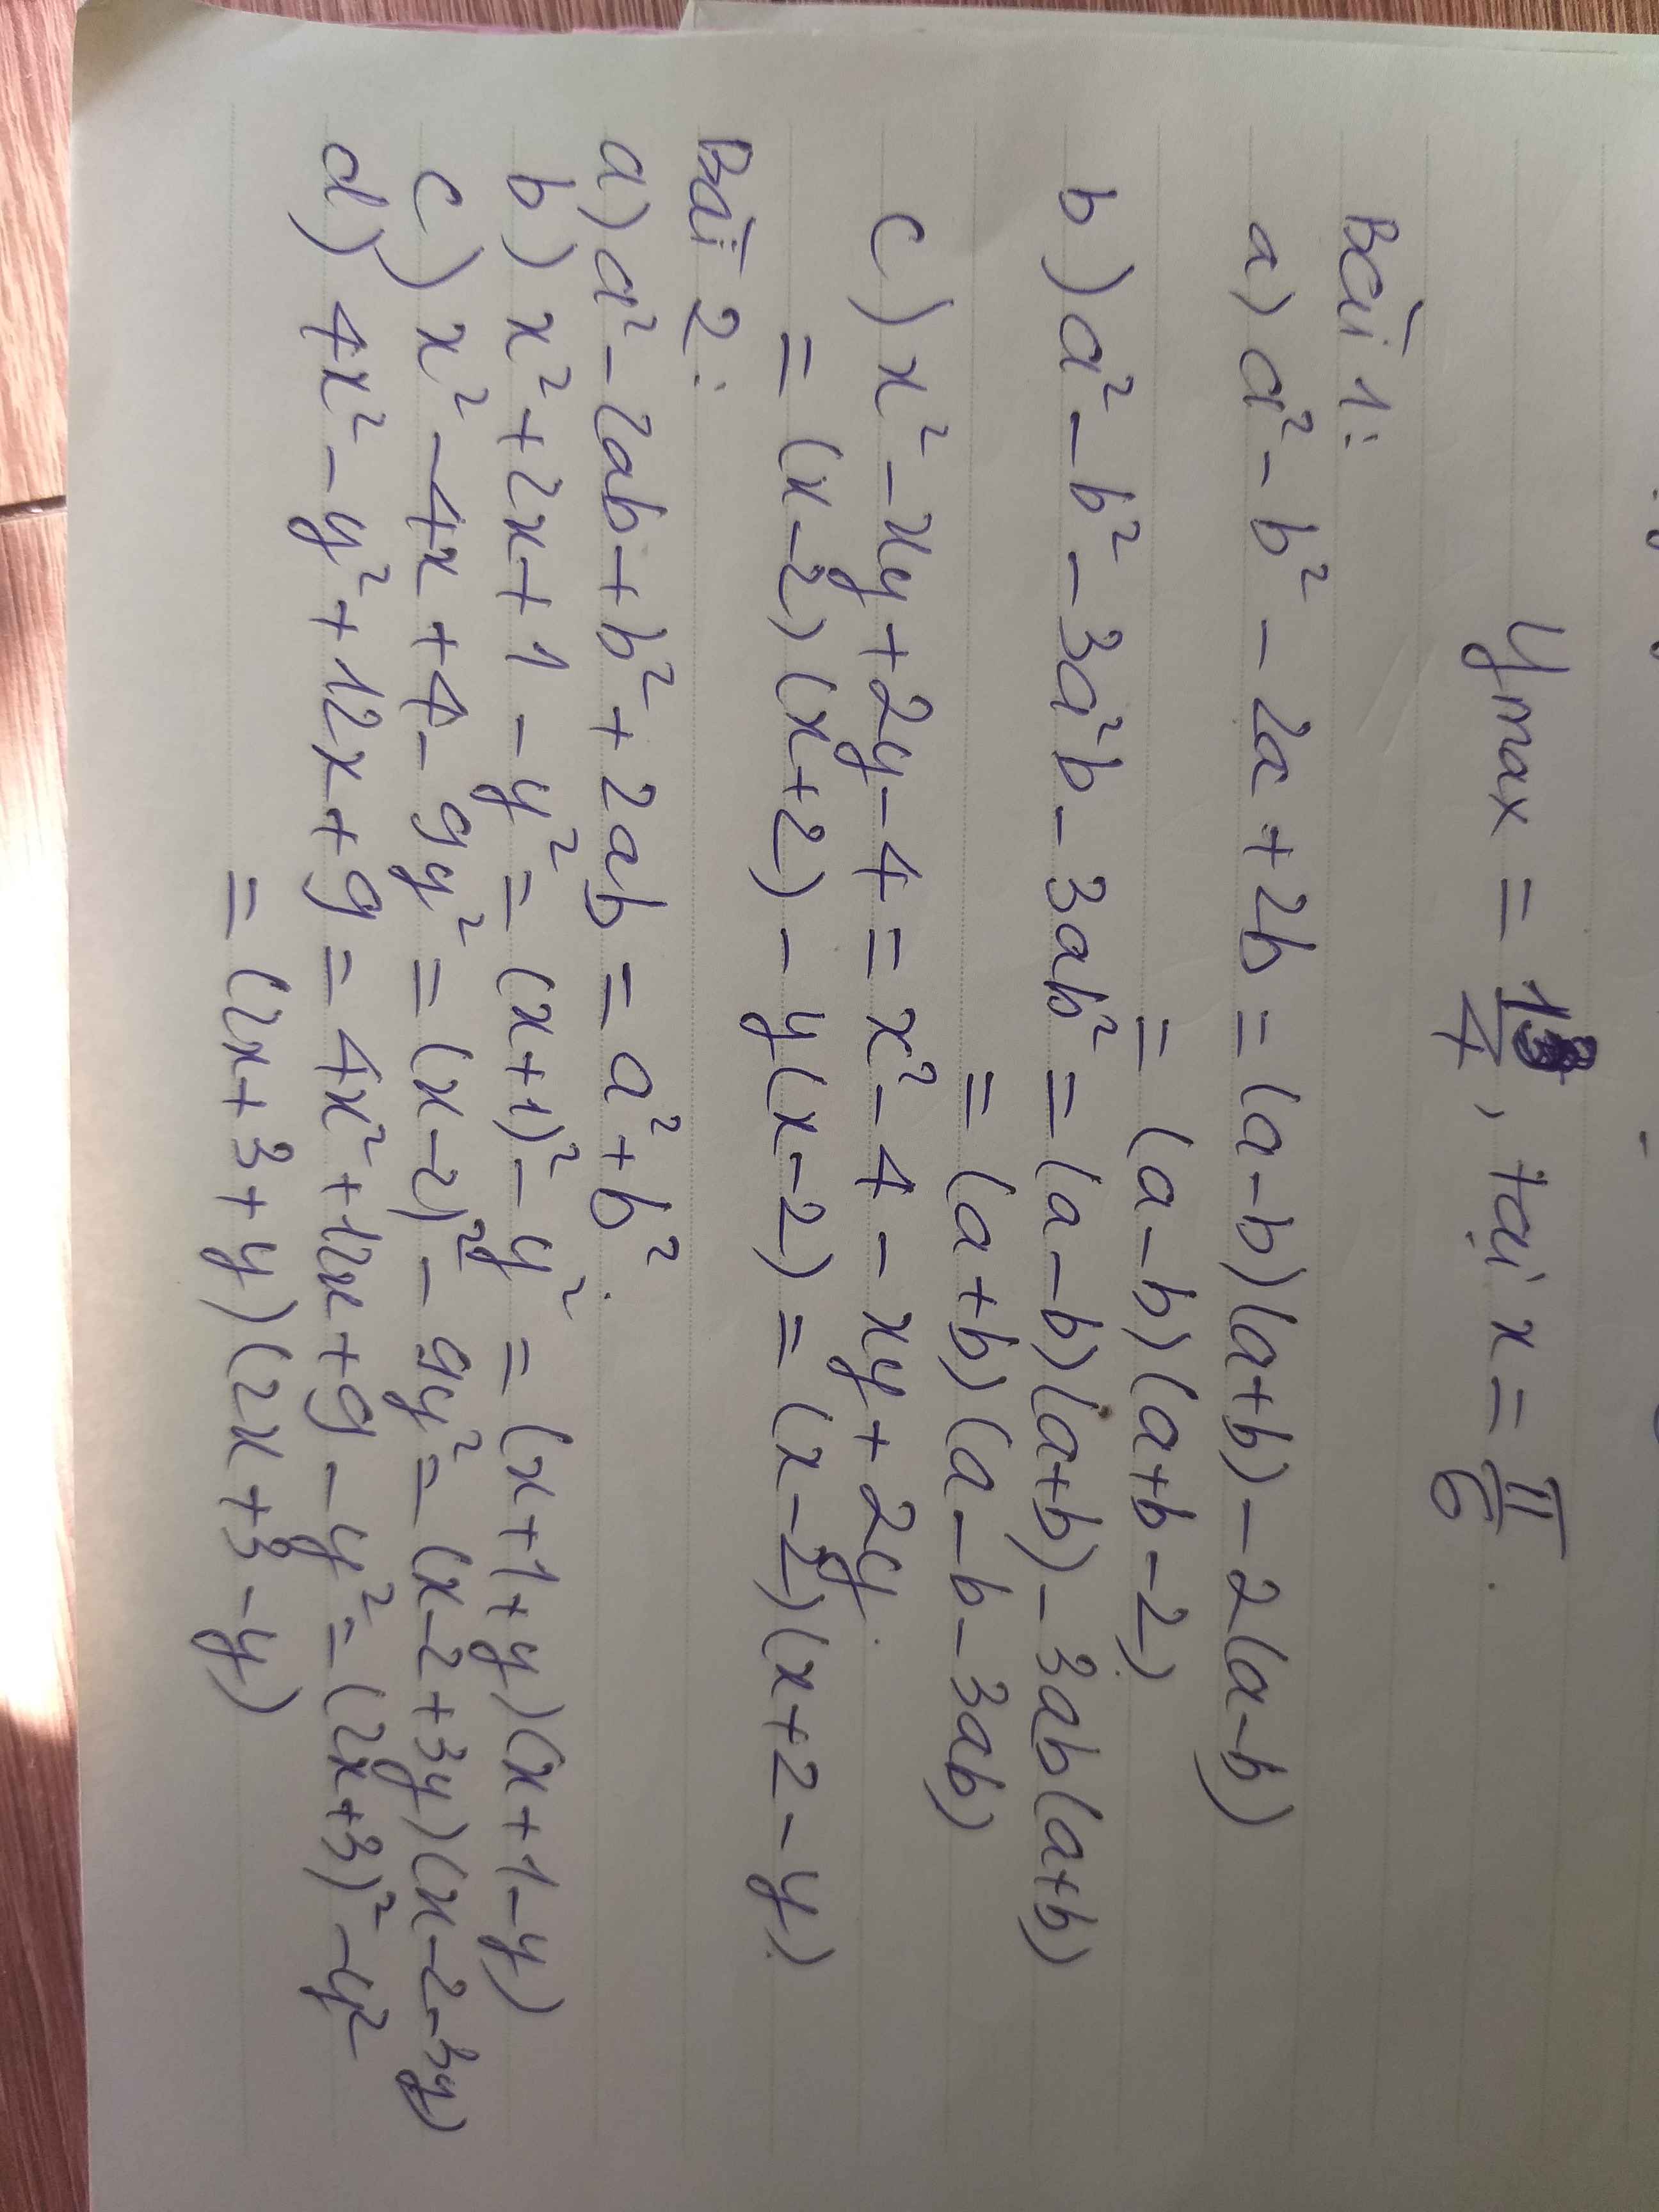 y max = 13/4, tại x = π/6.
Bài 1:
a) a² - b² - 2a + 2b = (a-b)(a+b) - 2(a-b)
= (a-b)(a+b-2)
b) a² - b² - 3a²b - 3ab² = (a-b)(a+b) - 3ab(a+b)
= (a+b)(a-b-3ab)
c) x² - xy + 2y - 4 = x² - 4 - xy + 2y.
= (x-2)(x+2) - y(x-2) = (x-2)(x+2-y)
Bài 2:
a) a² - 2ab + b² + 2ab = a² + b².
b) x² + 2x + 1 - y² = (x+1)² - y² = (x+1+y)(x+1-y)
c) x² - 4x + 4 - 9y² = (x-2)² - 9y² = (x-2+3y)(x-2-3y)
d) 4x² - y² + 12x + 9 = 4x² + 12x + 9 - y² = (2x+3)² - y²
= (2x+3+y)(2x+3-y)